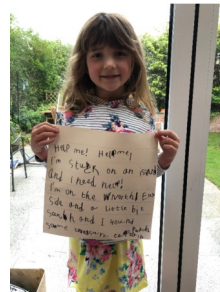 Help me! Help me,
I'm stuck on an island
and I need help!
I'm on the
side and a little bit
south and I found
some